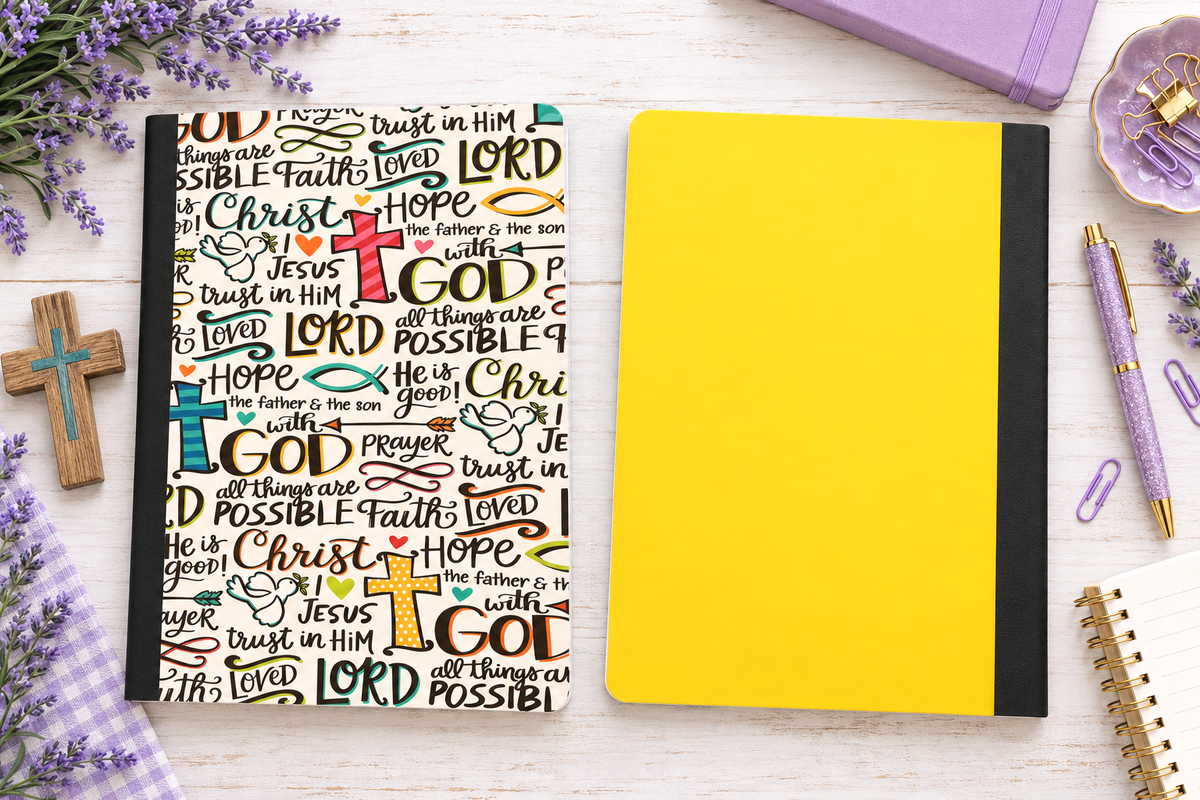 GOD PRAYER trust in HiM
things are
SSIBLE Faith LOVED LORD
is Christ HOPE
OD! the father & the son
I JESUS with GOD
R trust in HiM P
LOVED LORD all things are
POSSIBLE F
HOPE He is good! Chri
the father & the son
with GOD PRAYER I JE
trust in
RD all things are
POSSIBLE Faith LOVED L
He is good! Christ HOPE
the father & th
I JESUS with GOD
AYER trust in HiM
uth LOVED LORD all things ar
POSSIBL